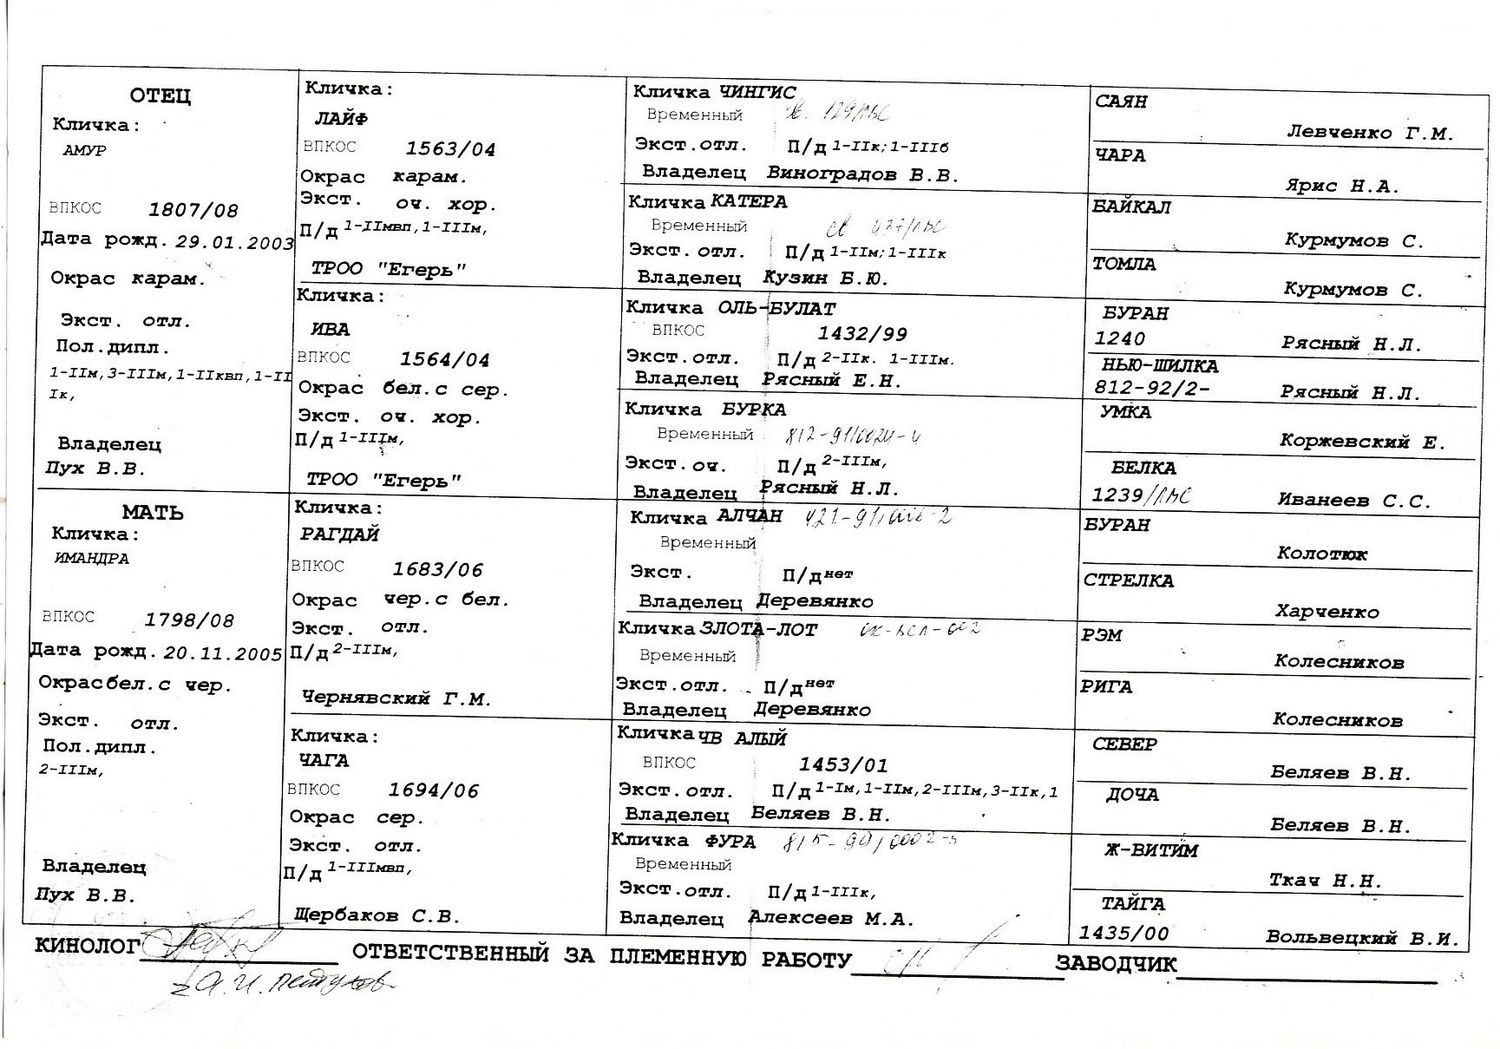 ОТЕЦ
Кличка:
АМУР
ВПКОС 1807/08
Дата рожд. 29.01.2003
Окрас карам.
Экст. отл.
Пол.дипл.
1-IIм,3-IIIм,1-IIквп,1-II
Iк,
Владелец
Пух В.В.
МАТЬ
Кличка:
ИМАНДРА
ВПКОС 1798/08
Дата рожд. 20.11.2005
Окрас бел.с чер.
Экст. отл.
Пол.дипл.
2-IIIм,
Владелец
Пух В.В.
Кличка:
ЛАЙФ
ВПКОС 1563/04
Окрас карам.
Экст. оч. хор.
П/д 1-IIмвп,1-IIIм,
ТРОО "Егерь"
Кличка:
ИВА
ВПКОС 1564/04
Окрас бел.с сер.
Экст. оч. хор.
П/д 1-IIIм,
ТРОО "Егерь"
Кличка:
РАГДАЙ
ВПКОС 1683/06
Окрас чер.с бел.
Экст. отл.
П/д 2-IIIм,
Чернявский Г.М.
Кличка:
ЧАГА
ВПКОС 1694/06
Окрас сер.
Экст. отл.
П/д 1-IIIмвп,
Щербаков С.В.
Кличка ЧИНГИС
Временный
Экст.отл. П/д 1-IIк;1-IIIб
Владелец Виноградов В.В.
Кличка КАТЕРА
Временный
Экст.отл. П/д 1-IIм;1-IIIк
Владелец Кузин Б.Ю.
Кличка ОЛЬ-БУЛАТ
ВПКОС 1432/99
Экст.отл. П/д 2-IIк. 1-IIIм.
Владелец Рясный Е.Н.
Кличка БУРКА
Временный
Экст.оч. П/д 2-IIIм,
Владелец Рясный Н.Л.
Кличка АЛЧАН
Временный
Экст. П/д нет
Владелец Деревянко
Кличка ЗЛОТА-ЛОТ
Временный
Экст.отл. П/д нет
Владелец Деревянко
Кличка ЧВ АЛЫЙ
ВПКОС 1453/01
Экст.отл. П/д 1-Iм,1-IIм,2-IIIм,3-IIк,1
Владелец Беляев В.Н.
Кличка ФУРА
Временный
Экст.отл. П/д 1-IIIк,
Владелец Алексеев М.А.
САЯН
Левченко Г.М.
ЧАРА
Ярис Н.А.
БАЙКАЛ
Курмумов С.
ТОМЛА
Курмумов С.
БУРАН
1240 Рясный Н.Л.
НЬЮ-ШИЛКА
812-92/2- Рясный Н.Л.
УМКА
Коржевский Е.
БЕЛКА
1239/ЛПС Иванеев С.С.
БУРАН
Колотюк
СТРЕЛКА
Харченко
РЭМ
Колесников
РИГА
Колесников
СЕВЕР
Беляев В.Н.
ДОЧА
Беляев В.Н.
Ж-ВИТИМ
Ткач Н.Н.
ТАЙГА
1435/00 Вольвецкий В.И.
КИНОЛОГ ОТВЕТСТВЕННЫЙ ЗА ПЛЕМЕННУЮ РАБОТУ ЗАВОДЧИК